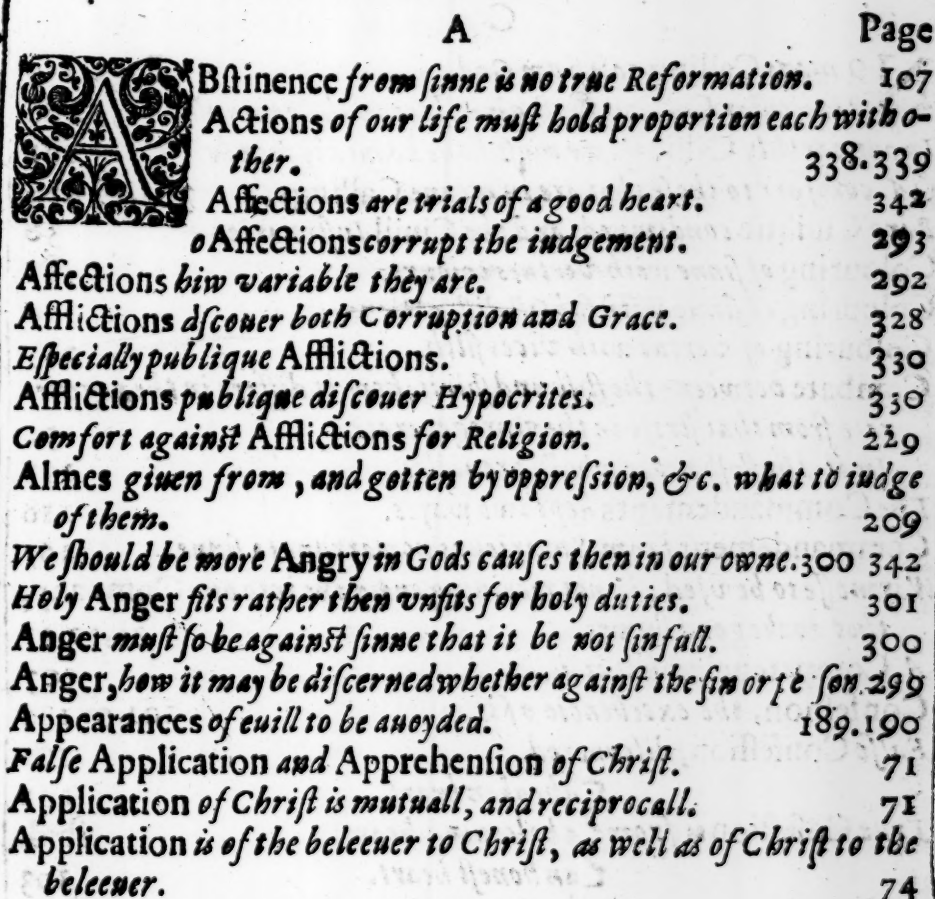 A Page
ABſtinence from ſinne is no true Reformation. 107
Actions of our life muſt hold proportion each with o-
ther. 338.339
Affections are trials of a good heart. 342
o Affections corrupt the iudgement. 293
Affections hiw variable they are. 292
Afflictions dſcouer both Corruption and Grace. 328
Eſpecially publique Afflictions. 330
Afflictions publique diſcouer Hypocrites. 330
Comfort againſt Afflictions for Religion. 229
Almes giuen from, and gotten by oppreſsion, &c. what to iudge
of them. 209
We ſhould be more Angry in Gods cauſes then in our owne. 300 342
Holy Anger fits rather then vnfits for holy duties. 301
Anger muſt ſo be againſt ſinne that it be not ſinfull. 300
Anger, how it may be diſcerned whether againſt the ſin or pe ſon. 299
Appearances of euill to be auoyded. 189.190
Falſe Application and Apprehenſion of Chriſt. 71
Application of Chriſt is mutuall, and reciprocall. 71
Application is of the beleeuer to Chriſt, as well as of Chriſt to the
beleeuer. 74